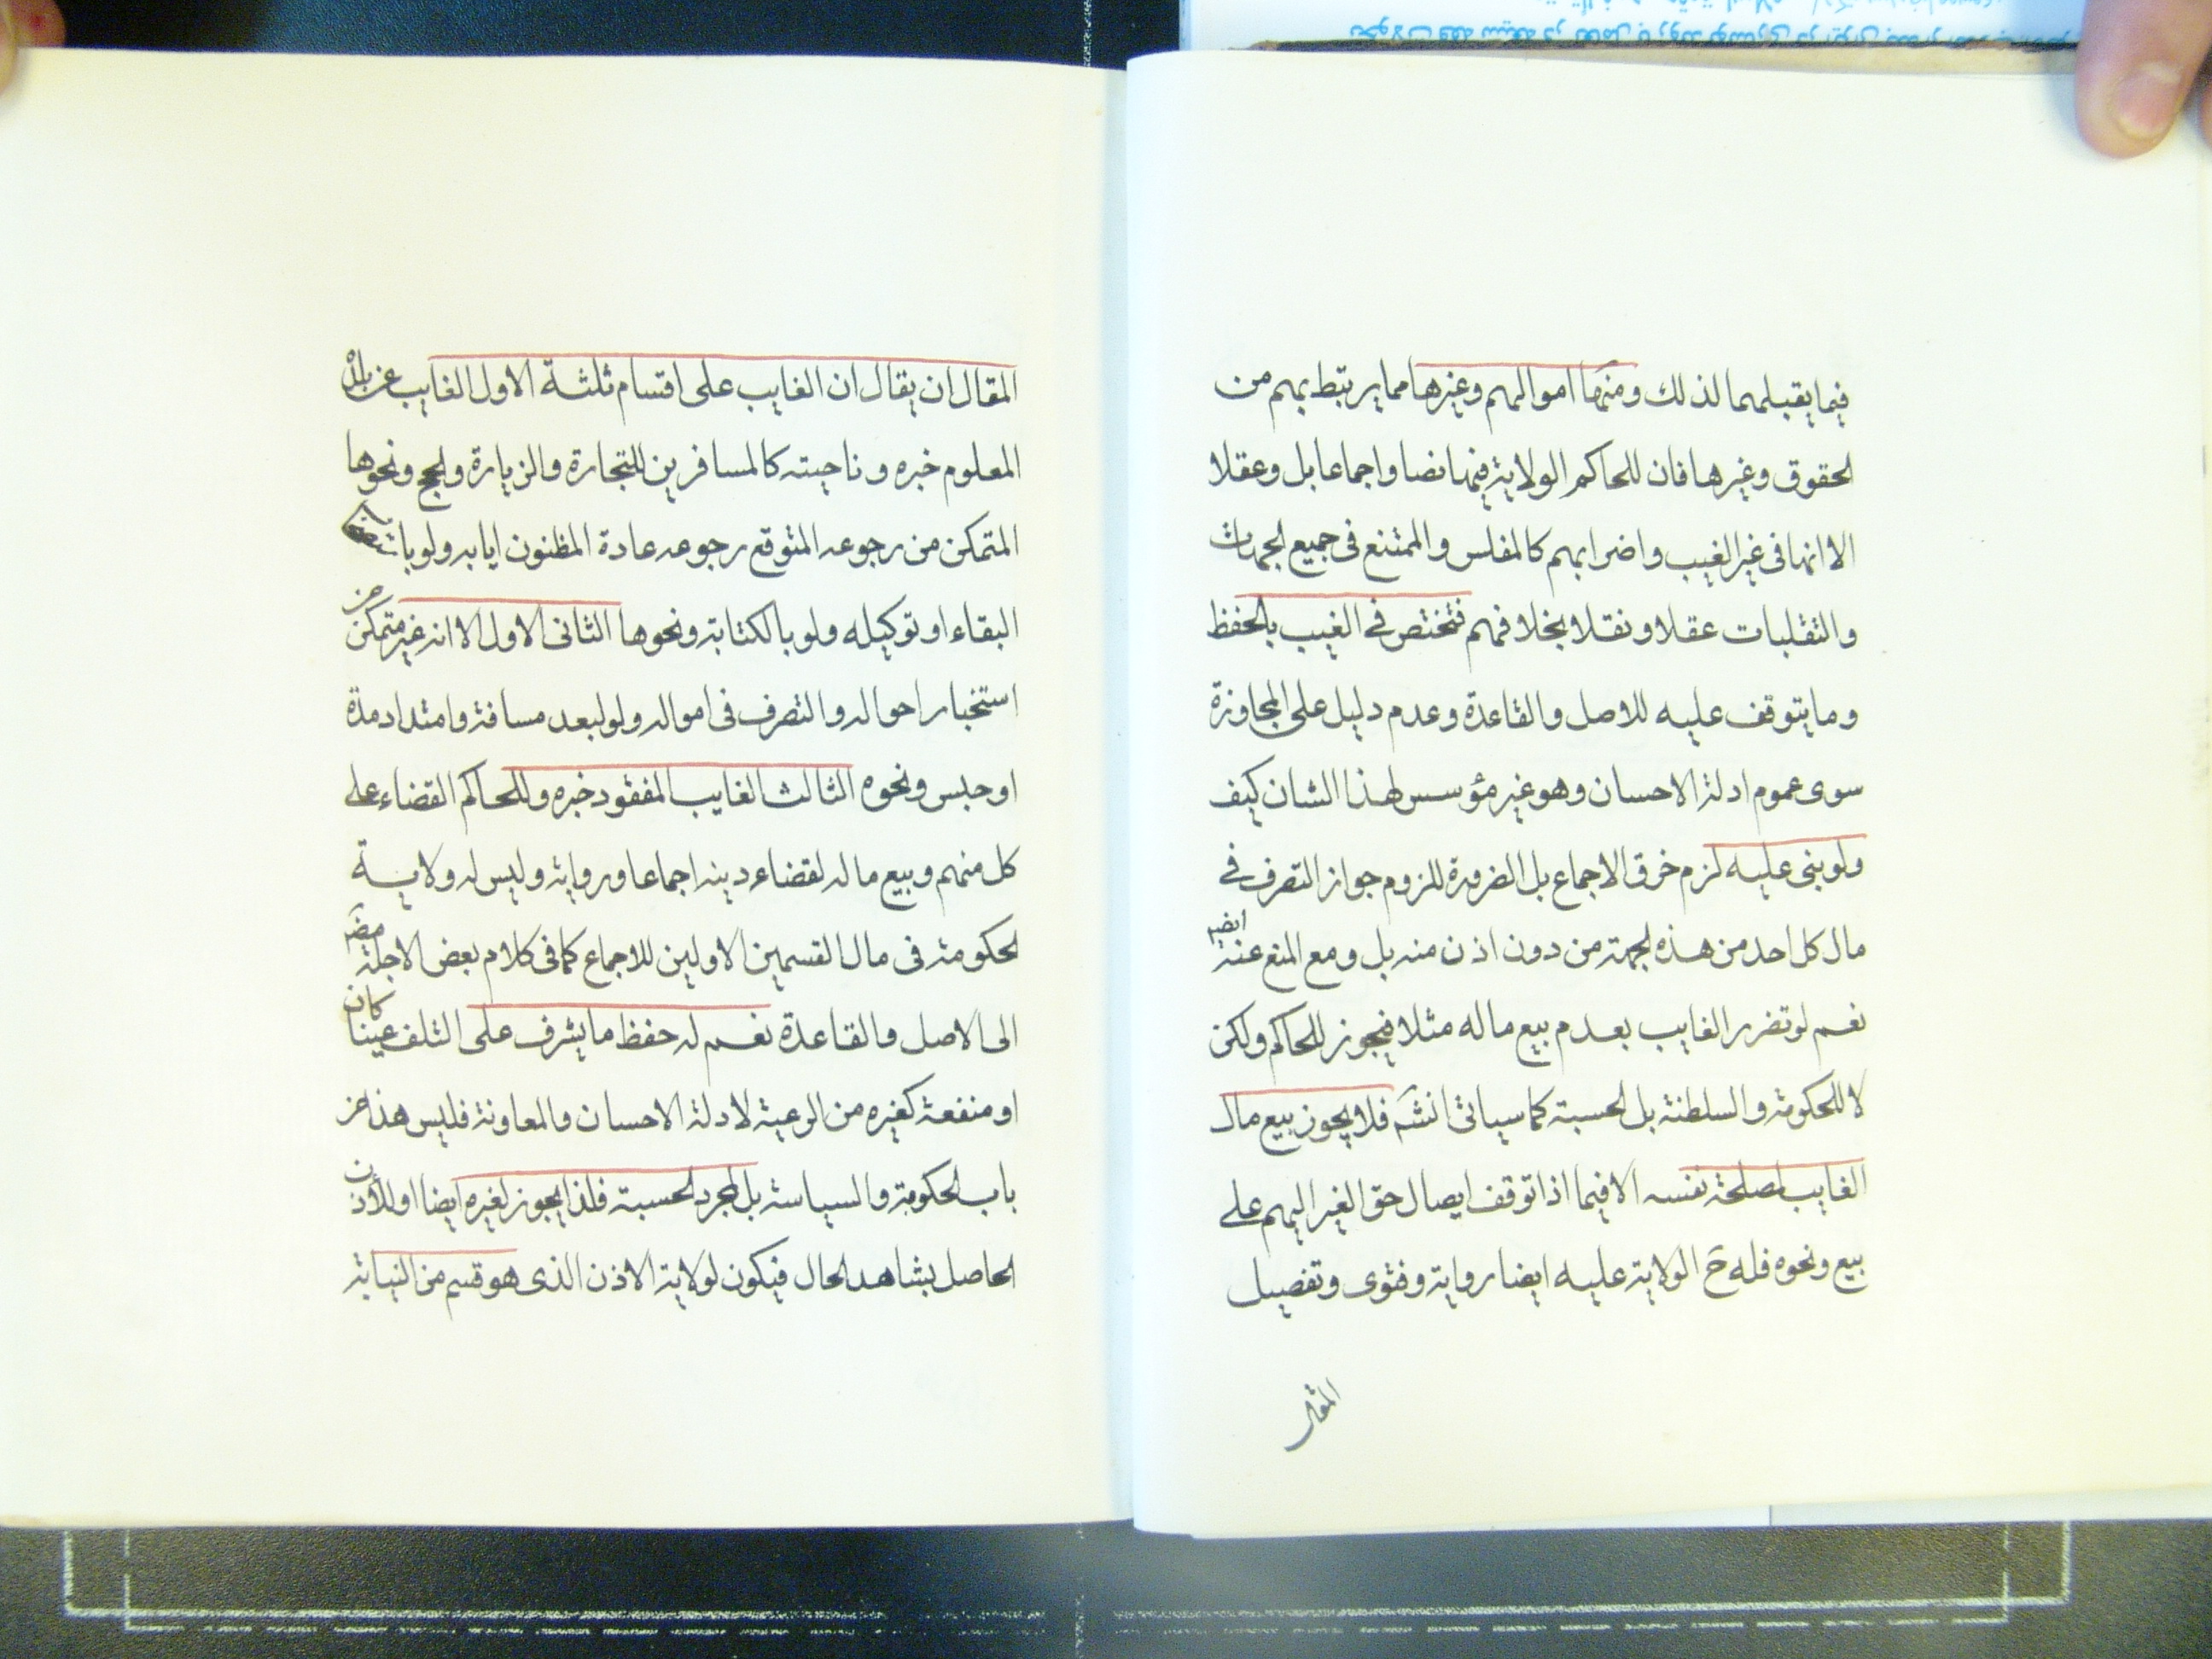 فيما يقبلهما لذلك ومنها اموالهم وغيرها مما يرتبط بهم من
الحقوق وغيرها فان للحاكم الولاية فيها نصا واجماعا بل وعقلا
الا انها في غير الغيب واضرابهم كالمفلس والممتنع في جميع الجهات
والتقلبات عقلا ونقلا بخلافهم فتختص في الغيب بالحفظ
وما يتوقف عليه للاصل والقاعدة وعدم دليل على المجاوزة
سوى عموم ادلة الاحسان وهو غير مؤسس لهذا الشان كيف
ولو بنى عليه لزم خرق الاجماع بل الضرورة للزوم جواز التصرف في
مال كل احد من هذه الجهة من دون اذن منه بل ومع المنع عنه ايضا
نعم لو تضرر الغايب بعدم بيع ماله مثلا فيجوز للحاكم ولكن
لا للحكومة والسلطنة بل الحسبة كما سياتى انشه فلا يجوز بيع مال
الغايب لمصلحة نفسه الا فيما اذا توقف ايصال حق الغير اليهم على
بيع ونحوه فله ح الولاية عليه ايضا رواية وفتوى وتفصيل
المقال
المقال ان يقال ان الغايب على اقسام ثلثة الاول الغايب عن بلده
المعلوم خبره وناحيته كالمسافرين للتجارة والزيارة والحج ونحوها
المتمكن من رجوعه المتوقع رجوعه عادة المظنون ايابه ولو
البقاء او توكيله ولو بالكتابة ونحوها الثانى الاول الا انه غير متمكن من
استخبار احواله والتصرف في امواله ولو لبعد مسافة وامتداد مدة
او حبس ونحوه الثالث الغايب المفقود خبره وللحاكم القضاء على
كل منهم وبيع ماله لقضاء دينه اجماعا ورواية وليس له ولاية
الحكومة في مال القسمين الاولين للاجماع كما في كلام بعض الاجلة مضا
الى الاصل والقاعدة نعم له حفظ ما يشرف على التلف عينا كان
او منفعة كغيره من الرعية لادلة الاحسان والمعاونة فليس هذا من
باب الحكومة والسياسة بل لمجرد الحسبة فلذا يجوز لغيره ايضا او للاذن
الحاصل بشاهد الحال فيكون لولاية الاذن الذى هو قسم من النيابة